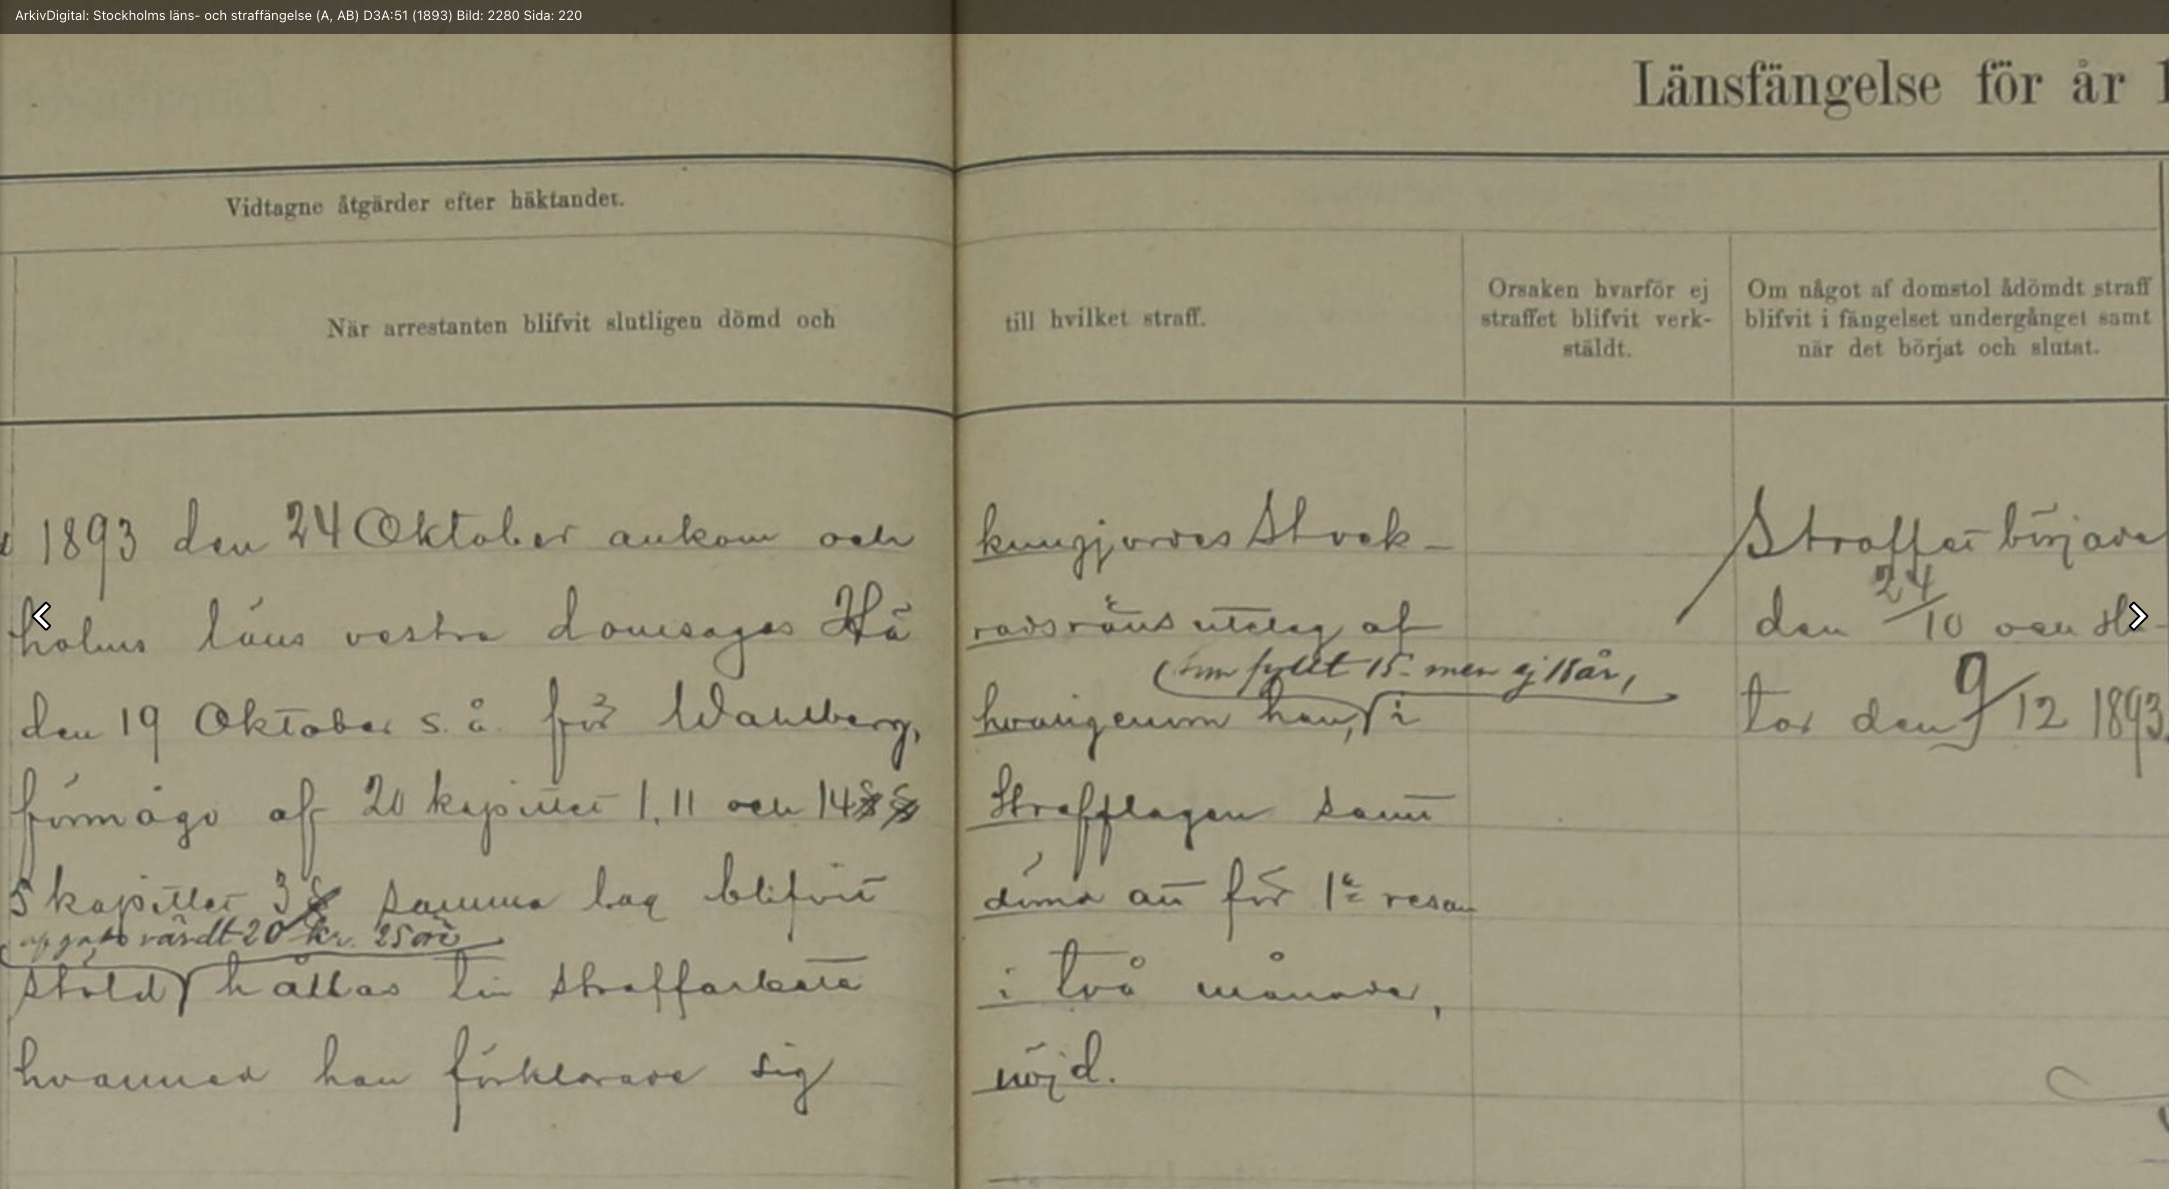 ArkivDigital: Stockholms läns- och straffängelse (A, AB) D3A:51 (1893) Bild: 2280 Sida: 220
Länsfängelse för år 1
Vidtagne åtgärder efter häktandet.
När arrestanten blifvit slutligen dömd och till hvilket straff.
Orsaken hvarför ej
straffet blifvit verk-
stäldt.
Om något af domstol ådömdt straff
blifvit i fängelset undergånget samt
när det börjat och slutat.
1893 den 24 Oktober ankom och kungjordes Stock-
holms läns vestra domsagas Hä radsrätts utslag af
den 19 Oktober s. å. för Wahlberg, hvarigenom han, (som fyllt 15 men ej 18 år, i
förmågo af 20 kapitlet 1, 11 och 14 §§ Strafflagen samt
5 kapitlet 3 § samma lag blifvit dömd att för 1a resan
stöld värdt 20 kr. 25 öre hållas till straffarbete i två månader,
hvarmed han förklarade sig nöjd.
Straffet började
den 24/10 och slu-
tar den 9/12 1893.